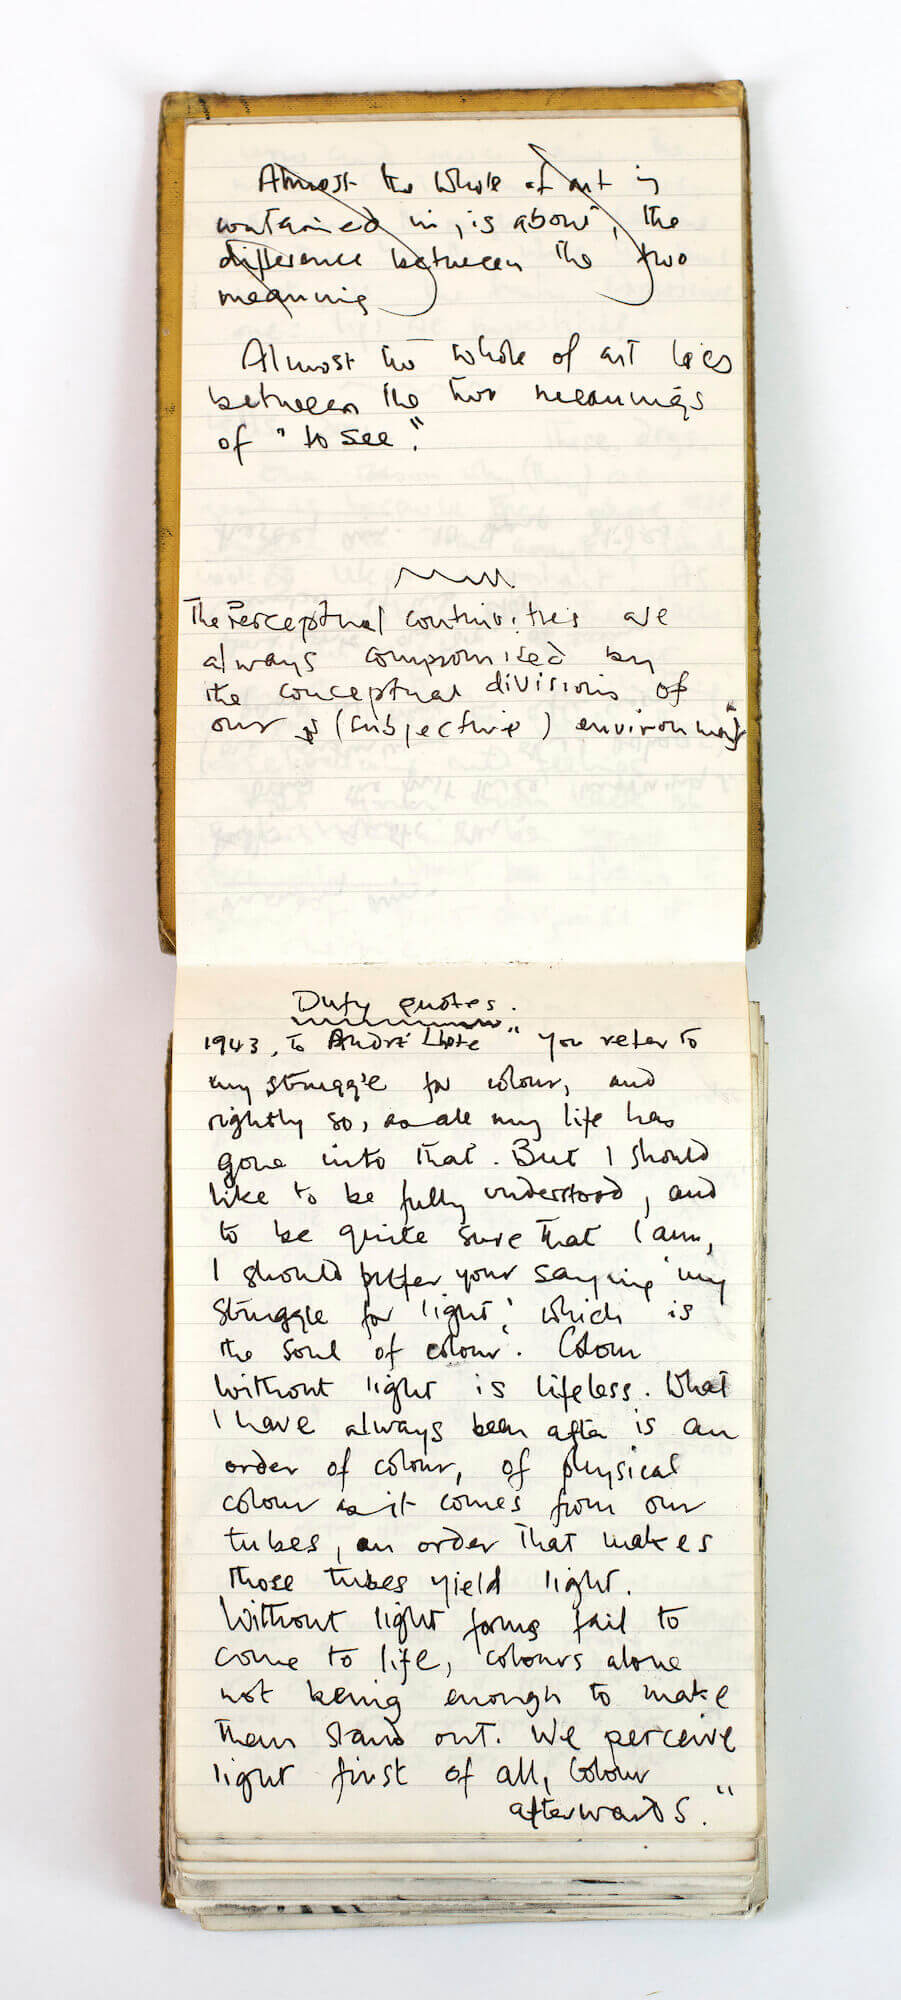 Almost the whole of art is
contained in, is about, the
difference between the two
meaning
Almost the whole of art lies
between the two meanings
of "to see".
The Perceptual continuities are
always compromised by
the conceptual divisions of
our (subjective) environment
Dufy quotes.
1943, to André Lhote "You refer to
my struggle for colour, and
rightly so, as all my life has
gone into that. But I should
like to be fully understood, and
to be quite sure that I am,
I should prefer your saying 'my
struggle for light', which is
the soul of colour'. Colour
without light is lifeless. What
I have always been after is an
order of colour, of physical
colour as it comes from our
tubes, an order that makes
those tubes yield light.
Without light forms fail to
come to life, colours alone
not being enough to make
them stand out. We perceive
light first of all, colour
afterwards."